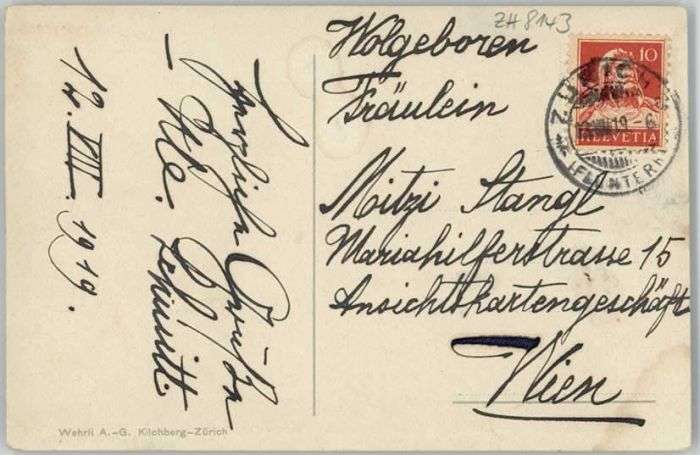 ZH 8143
Wolgeboren
Fräulein
Mitzi Stangl
Mariahilferstrasse 15
Ansichtskartengeschäft
Wien
10
HELVETIA
ZÜRICH
(FLUNTERN)
12. VIII. 1919.
Herzliche Grüße
Schmitt.
Wehrli A.-G. Kilchberg-Zürich